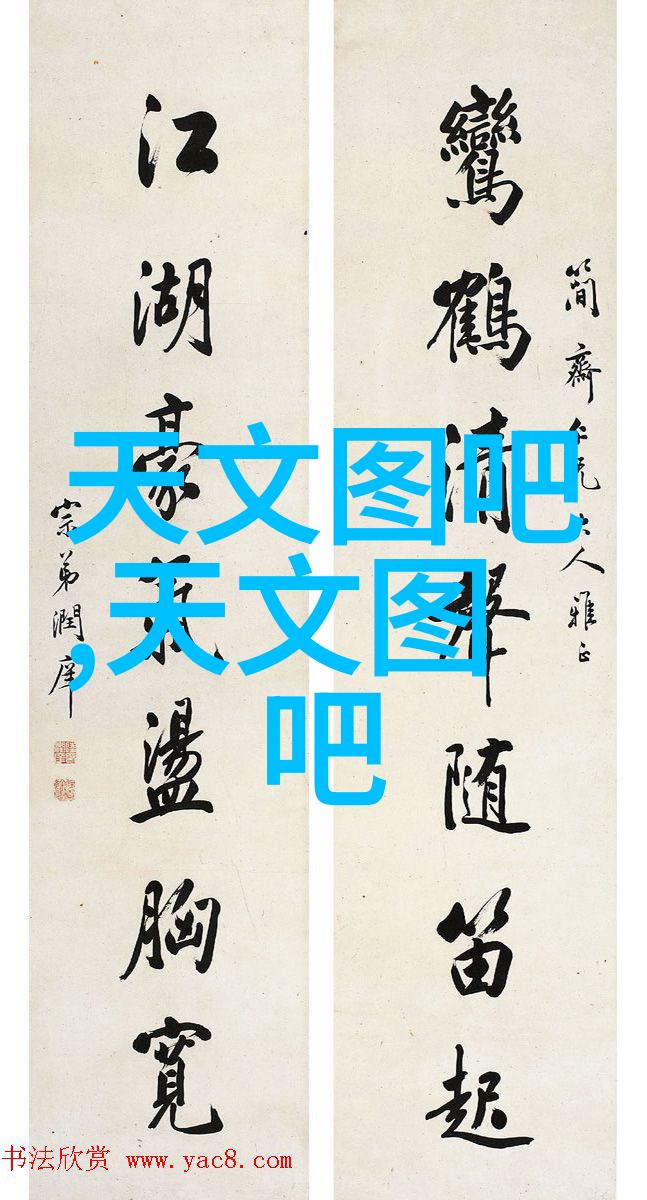 鸞鶴清聲随笛起
簡齋仁兄大人雅正
江湖豪氣盪胸寬
宗弟潤庠
天文图吧
,天文图
吧
书法欣赏 www.yac8.com